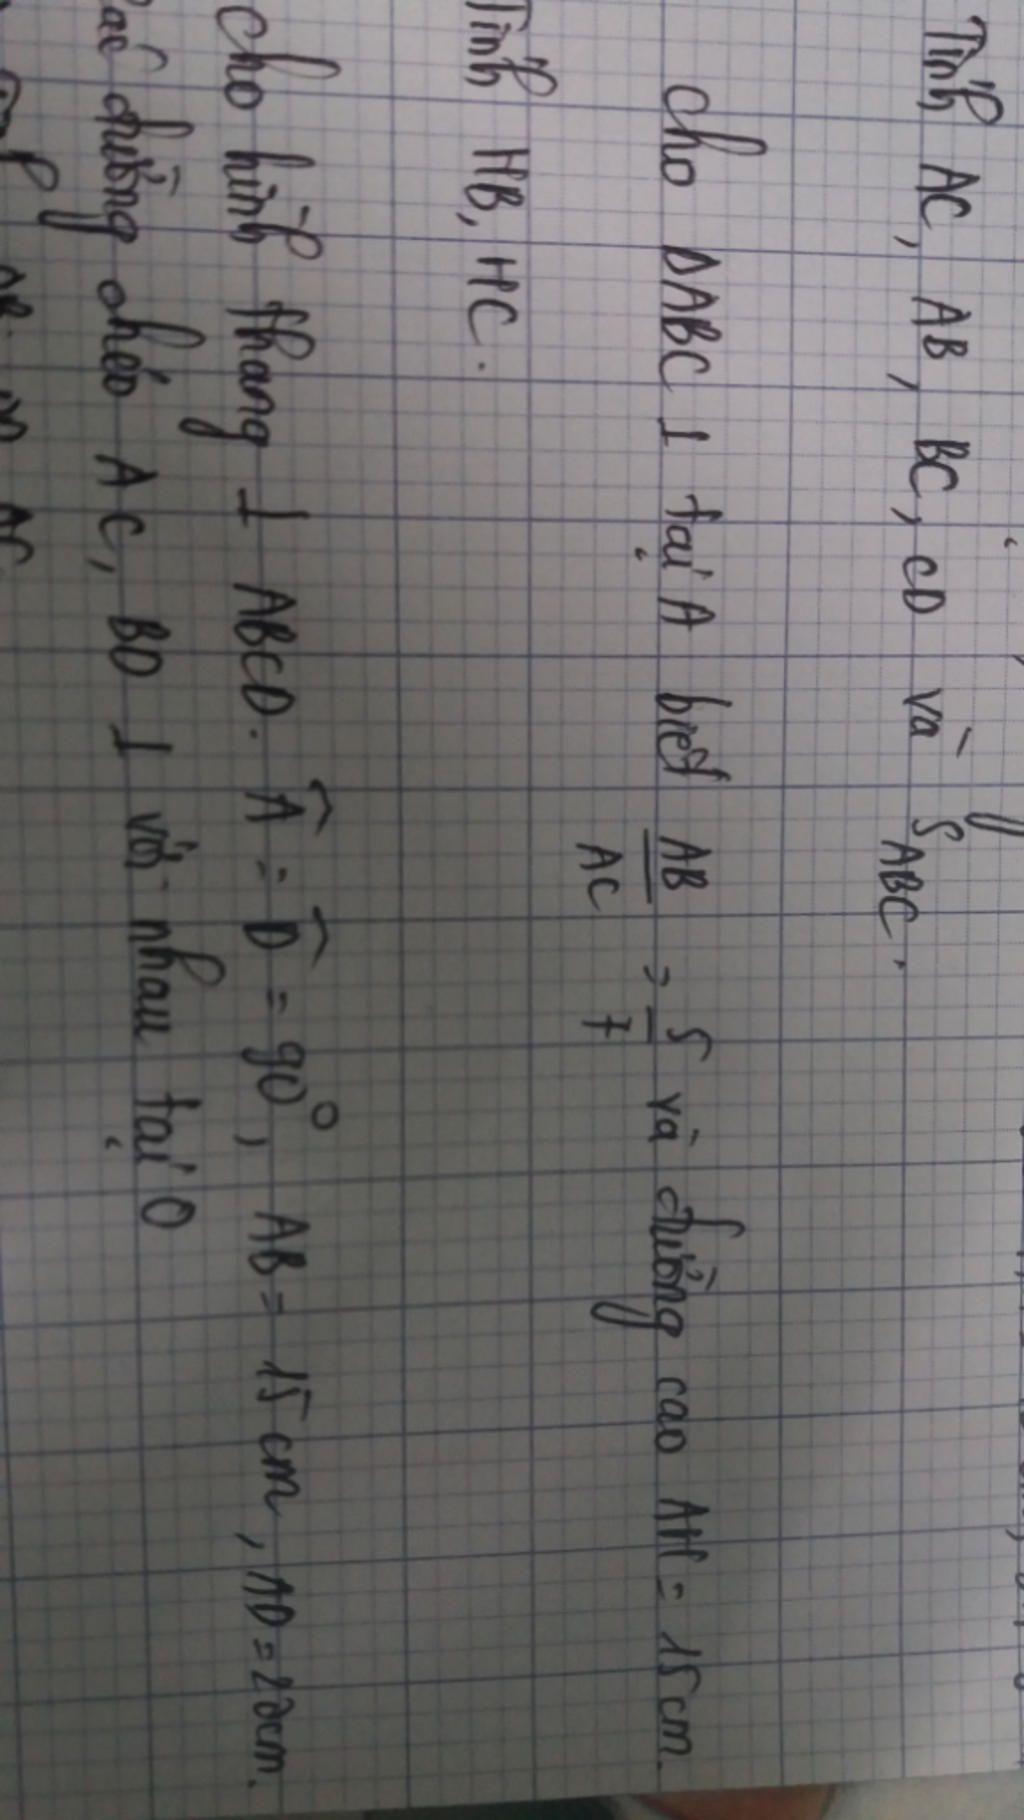 Tính AC, AB, BC, CD và S ABC.
Cho ΔABC ⊥ tại A biết AB/AC = 5/7 và đường cao AH = 15cm.
Tính HB, HC.
Cho hình thang ⊥ ABCD. Â = D̂ = 90°, AB = 15cm, AD = 20cm.
Các đường chéo AC, BD ⊥ với nhau tại O